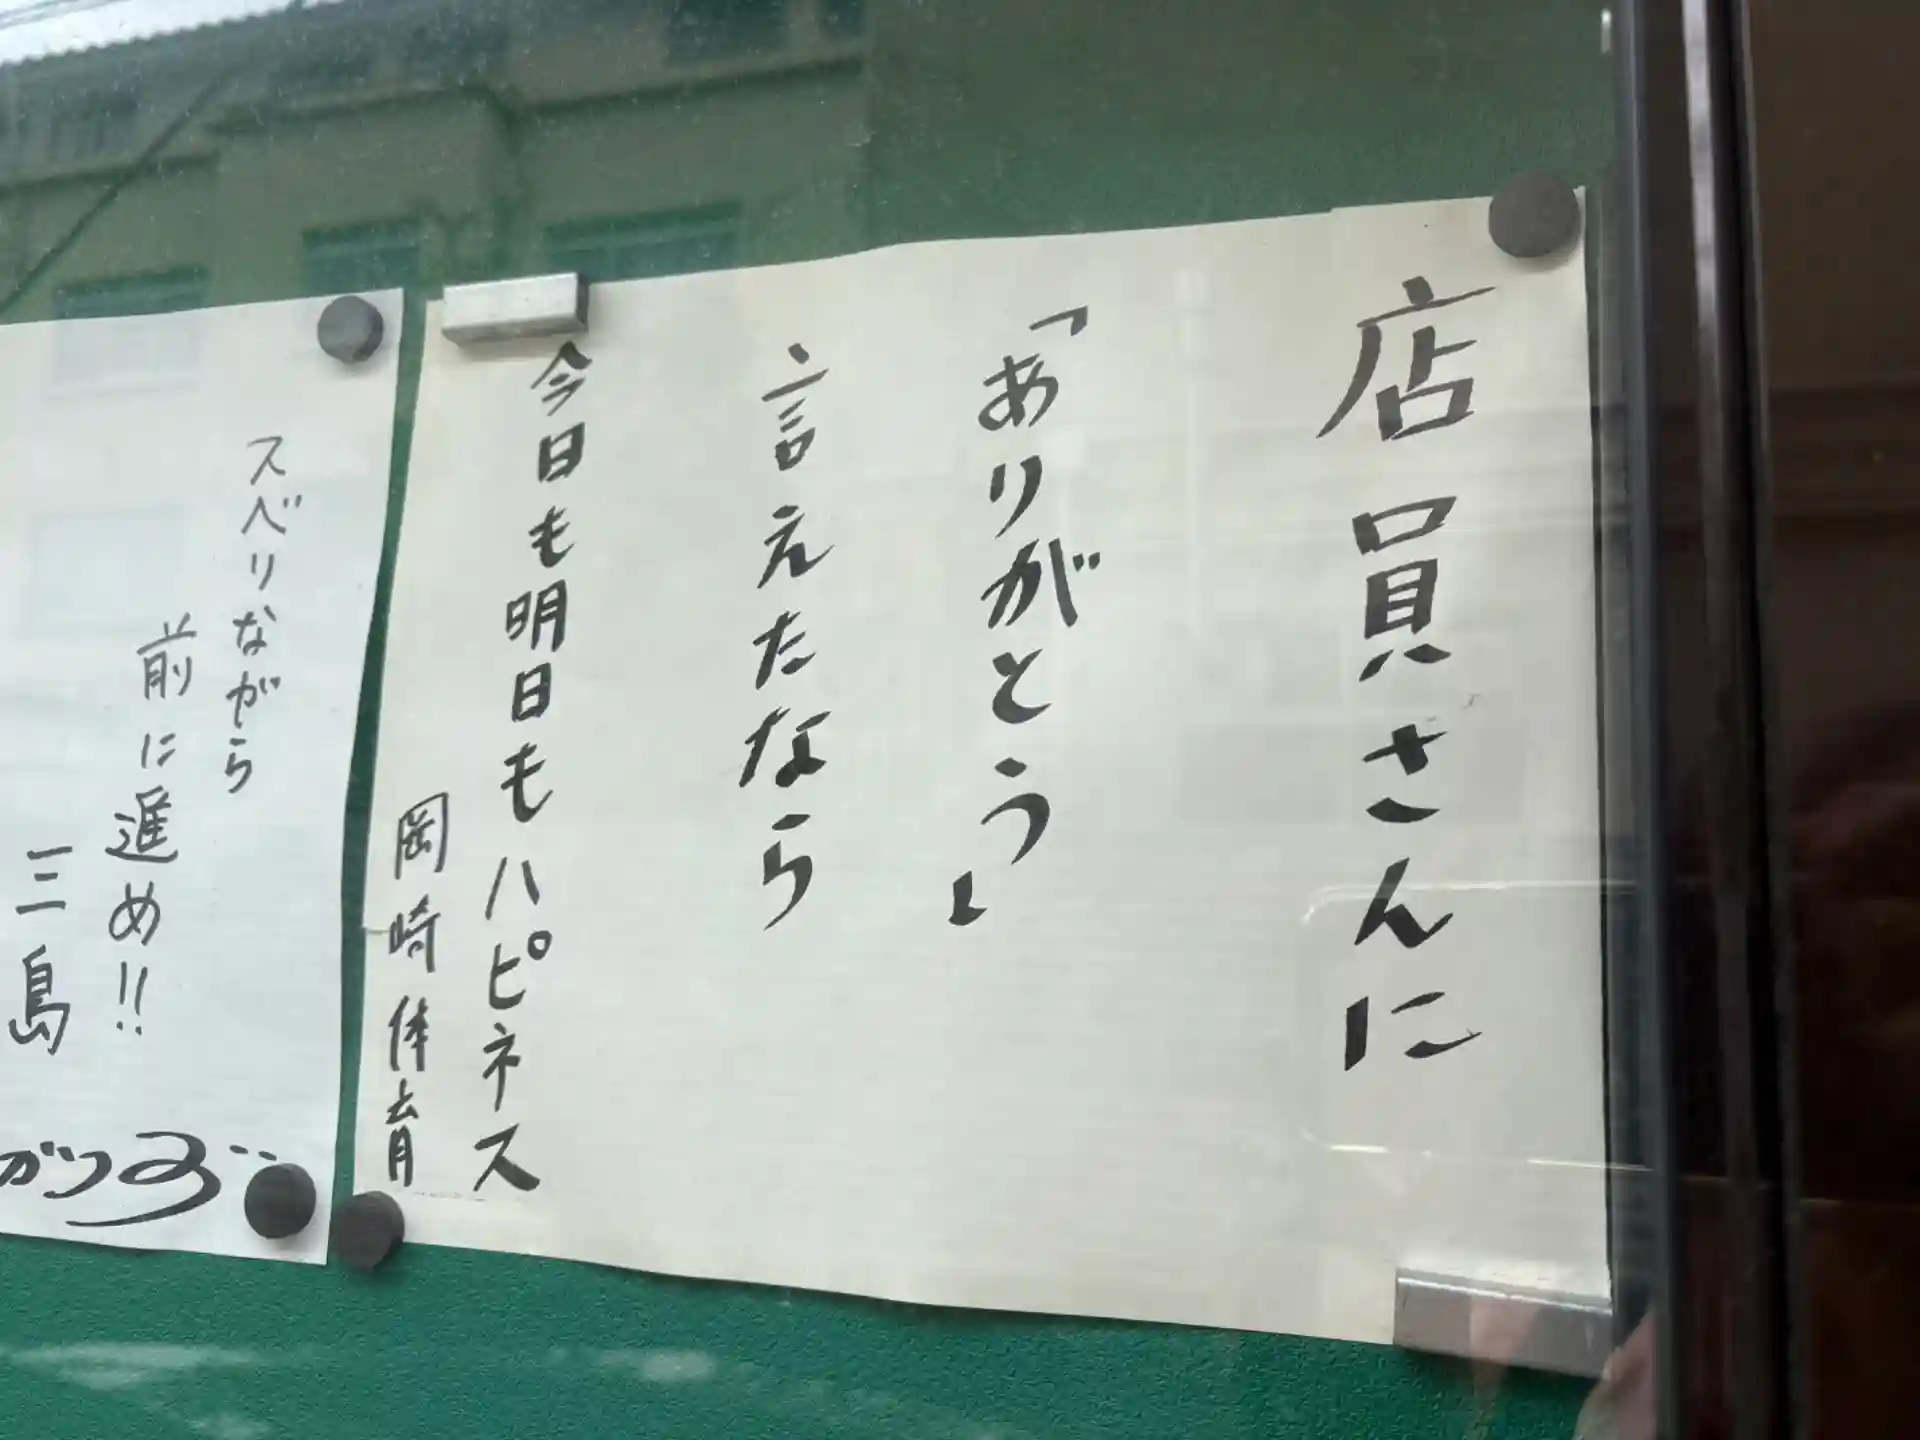 店員さんに
「ありがとう」
言えたなら
今日も明日もハピネス
岡崎体育
スベリながら
前に進め!!
三島